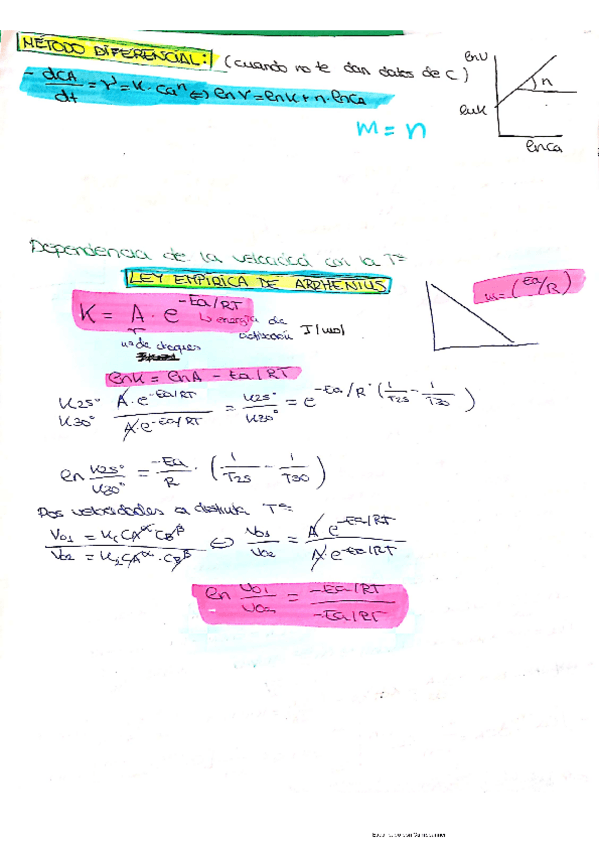 MÉTODO DIFERENCIAL: (cuando no te dan datos de C)
- dCA/dt = r = K · CA^n ⇔ ln r = ln K + n · ln CA
m = n
ln V
n
ln K
ln CA
Dependencia de la velocidad con la Tª
LEY EMPIRICA DE ARRHENIUS
K = A · e^-Ea/RT
↳ energía de activación J/mol
nº de choques
m = (Ea/R)
ln K = ln A - Ea/RT
K25° / K30° A · e^-Ea/RT / A · e^-Ea/RT = K25° / K30° = e^-Ea/R · (1/T25 - 1/T30)
ln K25° / K30° = -Ea/R · (1/T25 - 1/T30)
Dos velocidades a distinta Tª:
V01 = K1 CA^α CB^β / V02 = K2 CA^α · CB^β ⇔ V01/V02 = A e^-Ea/RT / A · e^-Ea/RT
ln V01/V02 = -Ea/RT / -Ea/RT
Escaneado con CamScanner